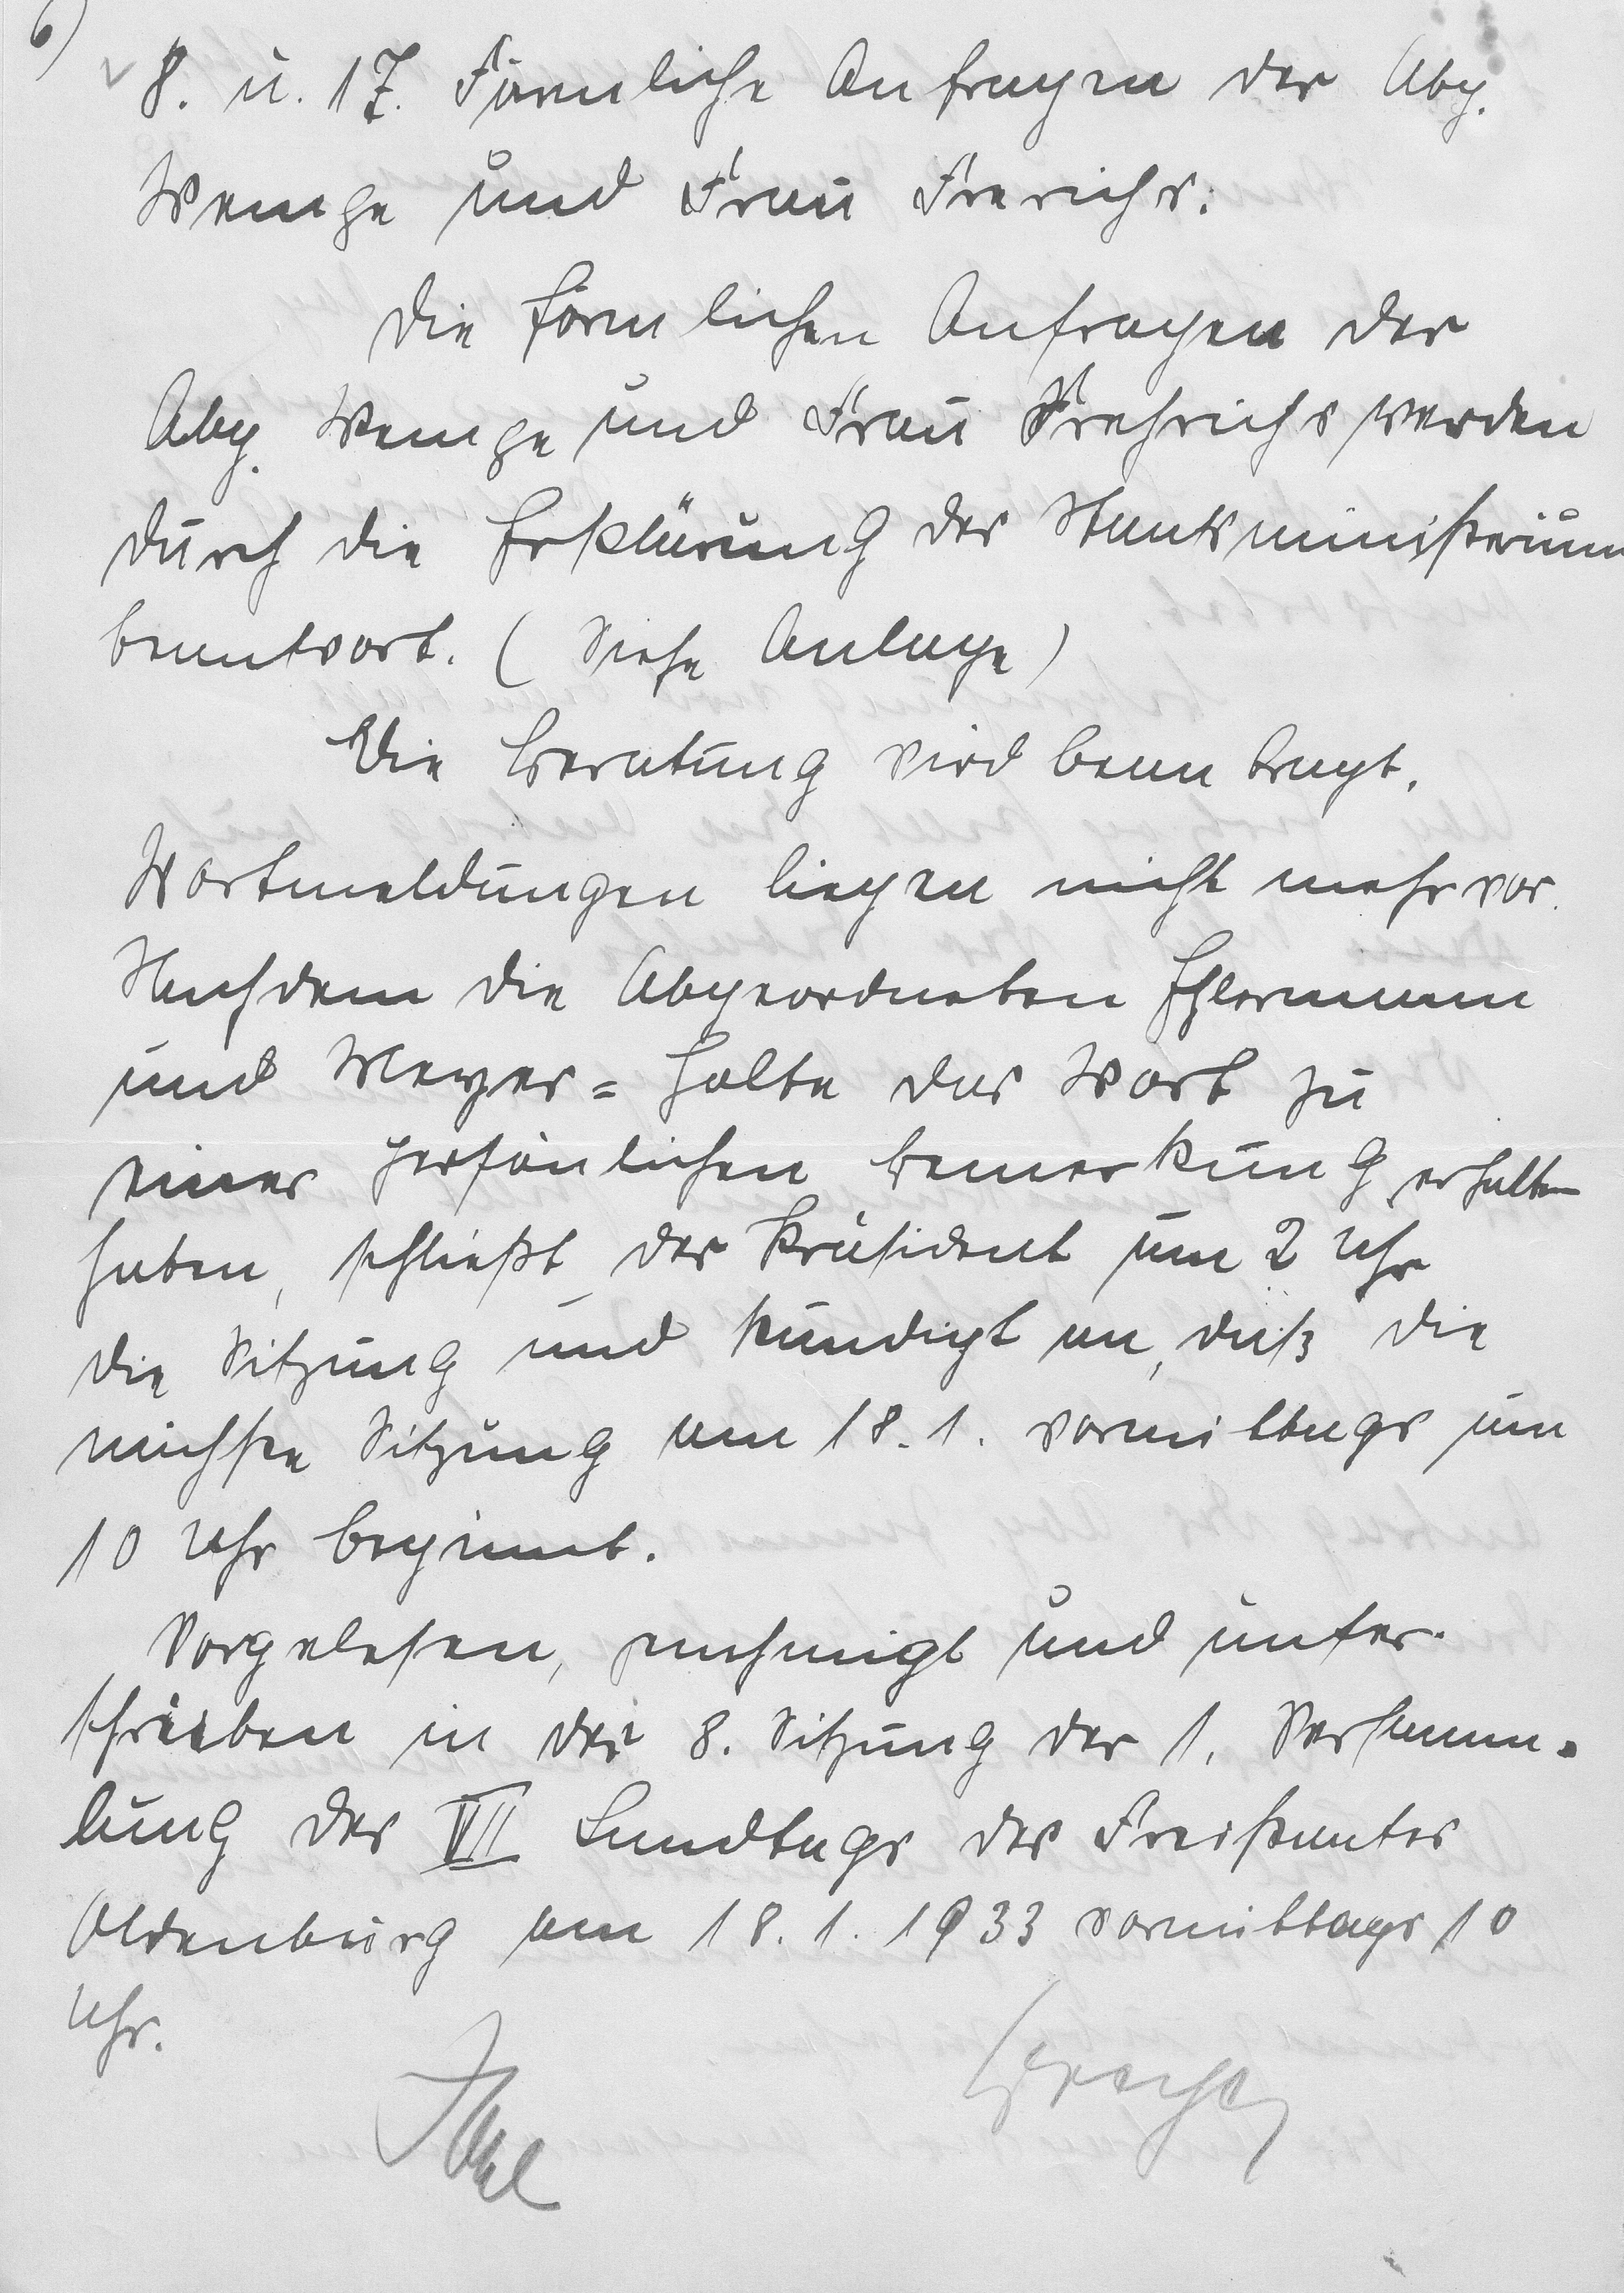 6)
8. u. 17. Förmliche Anfragen der Abg.
Wempe und Frau Frerichs:
Die förmlichen Anfragen der
Abg. Wempe und Frau Frehrichs werden
durch die Erklärung des Staatsministerium
beantwort. (Siehe Anlage)
Die Beratung wird beantragt.
Wortmeldungen liegen nicht mehr vor.
Nachdem die Abgeordneten Ehlermann
und Meyer=Holte das Wort zu
einer persönlichen Bemerkung erhalten
haben, schließt der Präsident um 2 Uhr
die Sitzung und kündigt an, daß die
nächste Sitzung am 18.1. vormittags um
10 Uhr beginnt.
Vorgelesen, genehmigt und unter-
schrieben in der 8. Sitzung der 1. Versamm-
lung des VII Landtags des Freistaates
Oldenburg am 18.1.1933 vormittags 10
Uhr.